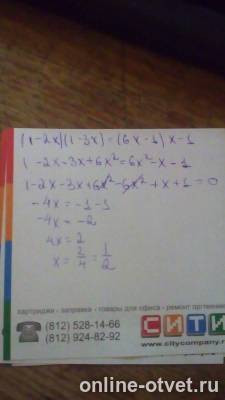 (1-2x)(1-3x)=(6x-1)x-1
1-2x-3x+6x²=6x²-x-1
1-2x-3x+6x²-6x²+x+1=0
-4x=-1-1
-4x=-2
4x=2
x=2/4=1/2
картриджи · заправка · товары для офиса · ремонт оргтехники
(812) 528-14-66
(812) 924-82-92
СИТИ
www.citycompany.r
online-otvet.ru